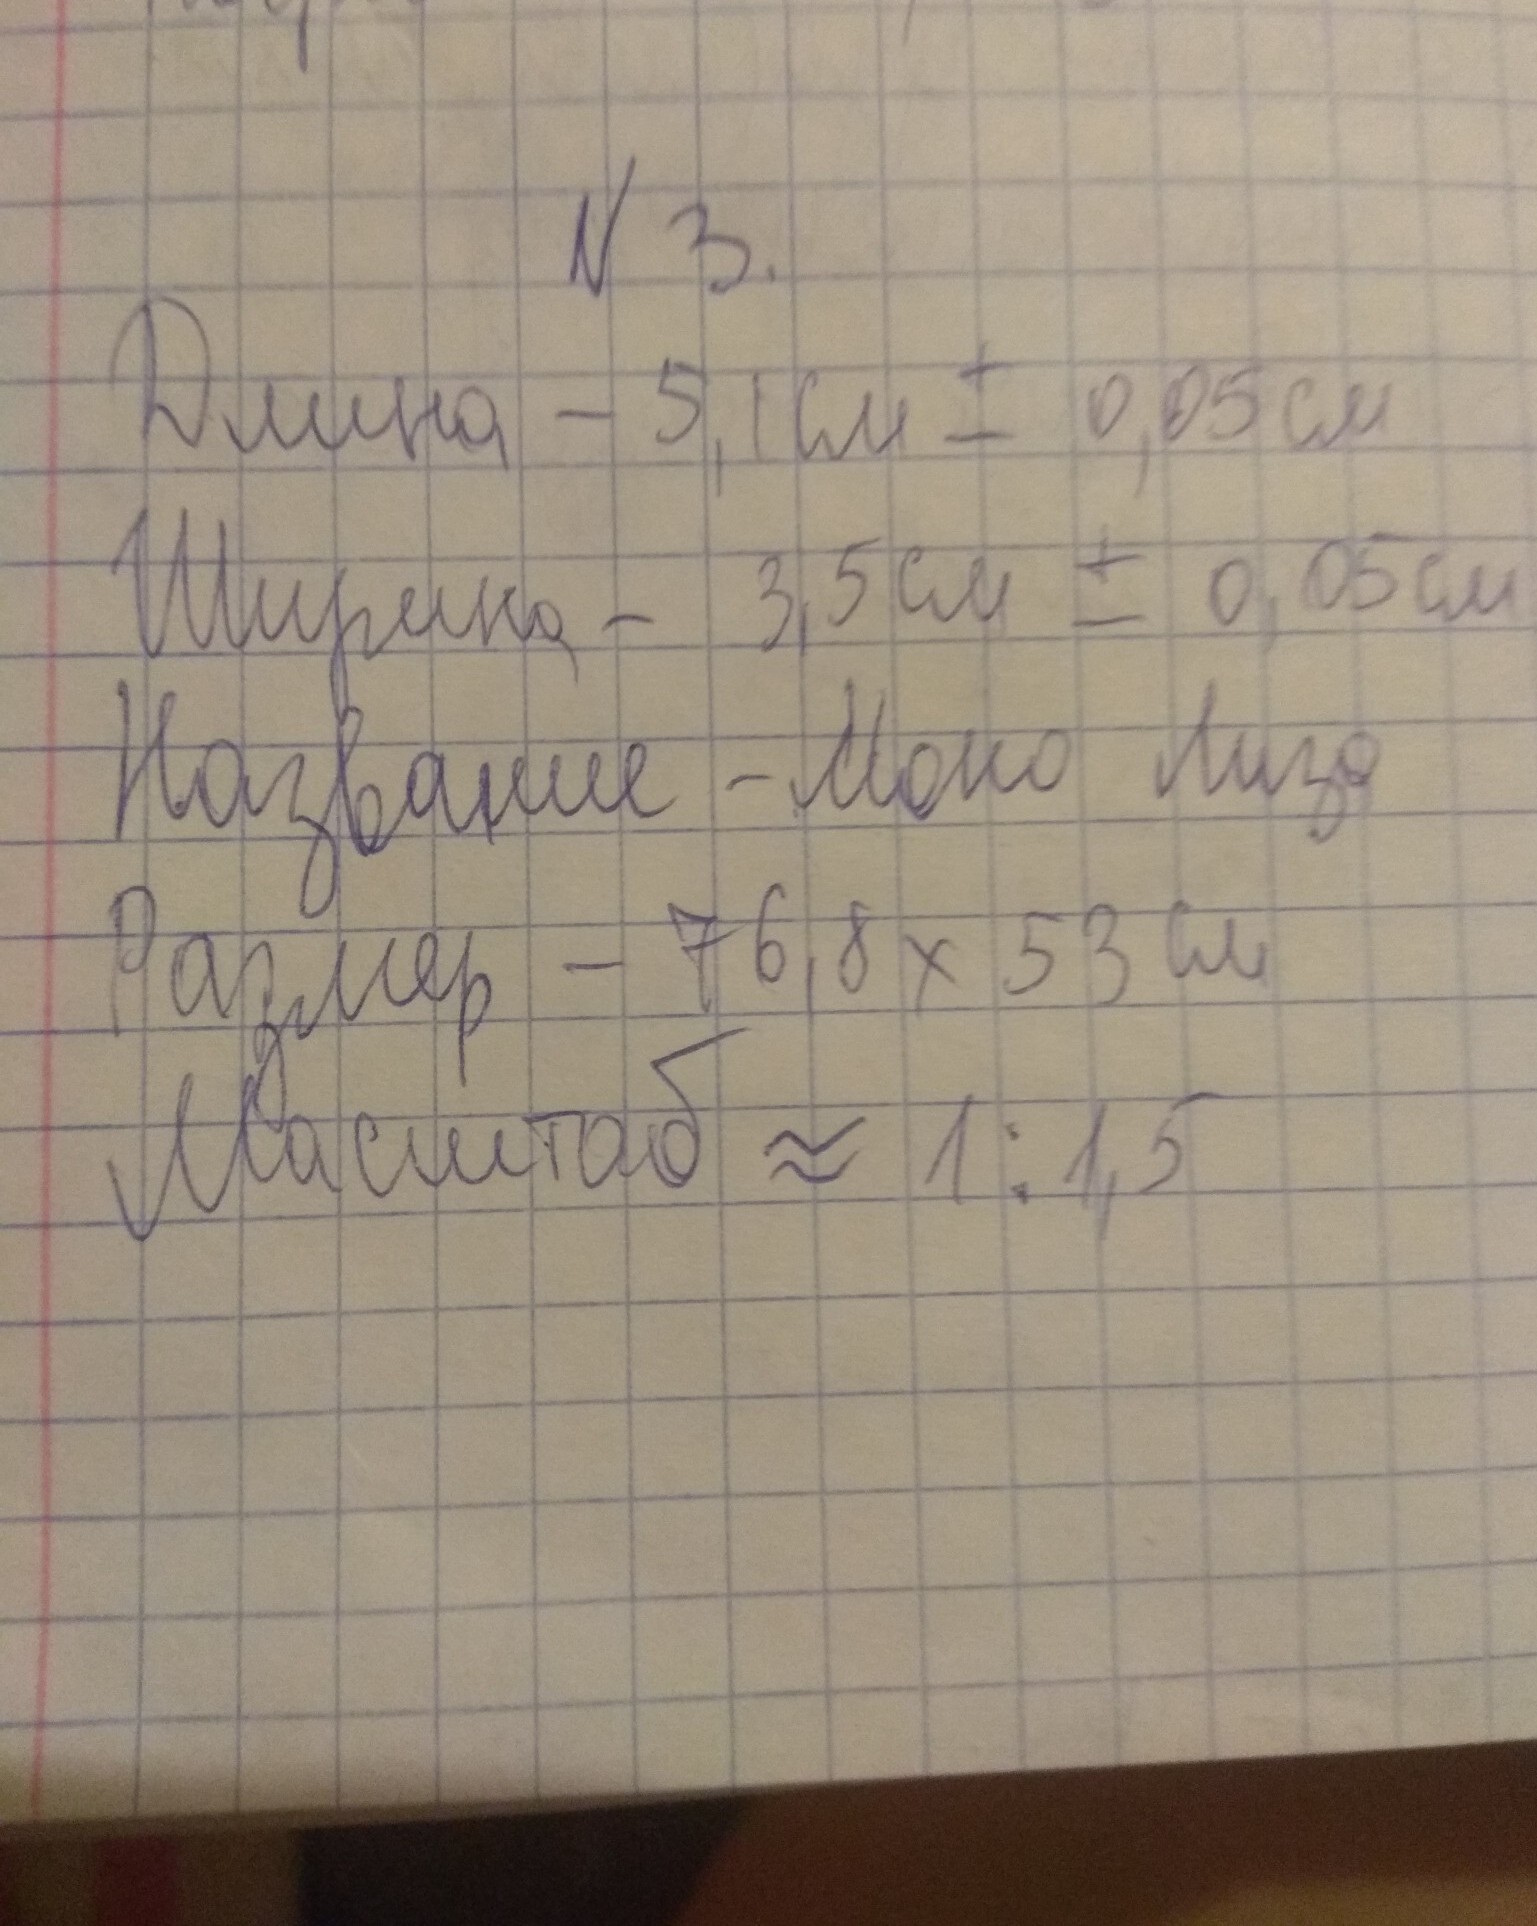 N 3.
Длина - 5,1см ± 0,05см
Ширина - 3,5см ± 0,05см
Название - Мона Лиза
Размер - 76,8 х 53 см
Масштаб ≈ 1:1,5